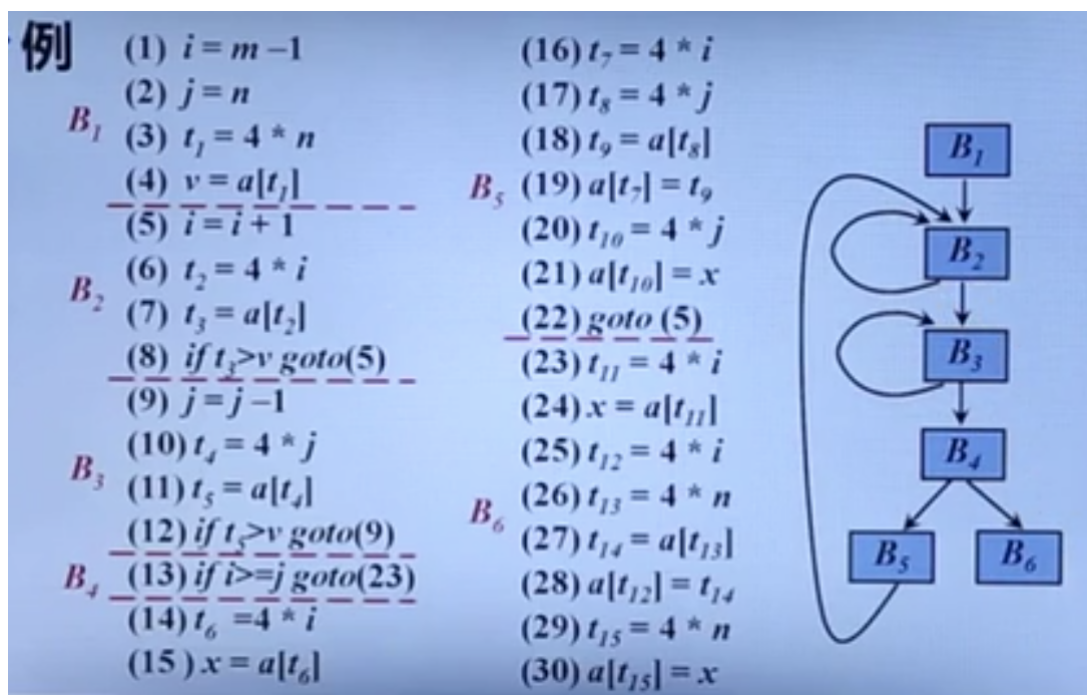 例
(1) i = m –1
(2) j = n
B₁
(3) t₁ = 4 * n
(4) v = a[t₁]
(5) i = i + 1
(6) t₂ = 4 * i
B₂
(7) t₃ = a[t₂]
(8) if t₃>v goto(5)
(9) j = j –1
(10) t₄ = 4 * j
B₃
(11) t₅ = a[t₄]
(12) if t₅>v goto(9)
B₄ (13) if i>=j goto(23)
(14) t₆ =4 * i
(15 ) x = a[t₆]
(16) t₇ = 4 * i
(17) t₈ = 4 * j
(18) t₉ = a[t₈]
B₅ (19) a[t₇] = t₉
(20) t₁₀ = 4 * j
(21) a[t₁₀] = x
(22) goto (5)
(23) t₁₁ = 4 * i
(24) x = a[t₁₁]
(25) t₁₂ = 4 * i
(26) t₁₃ = 4 * n
B₆
(27) t₁₄ = a[t₁₃]
(28) a[t₁₂] = t₁₄
(29) t₁₅ = 4 * n
(30) a[t₁₅] = x
B₁
B₂
B₃
B₄
B₅ B₆